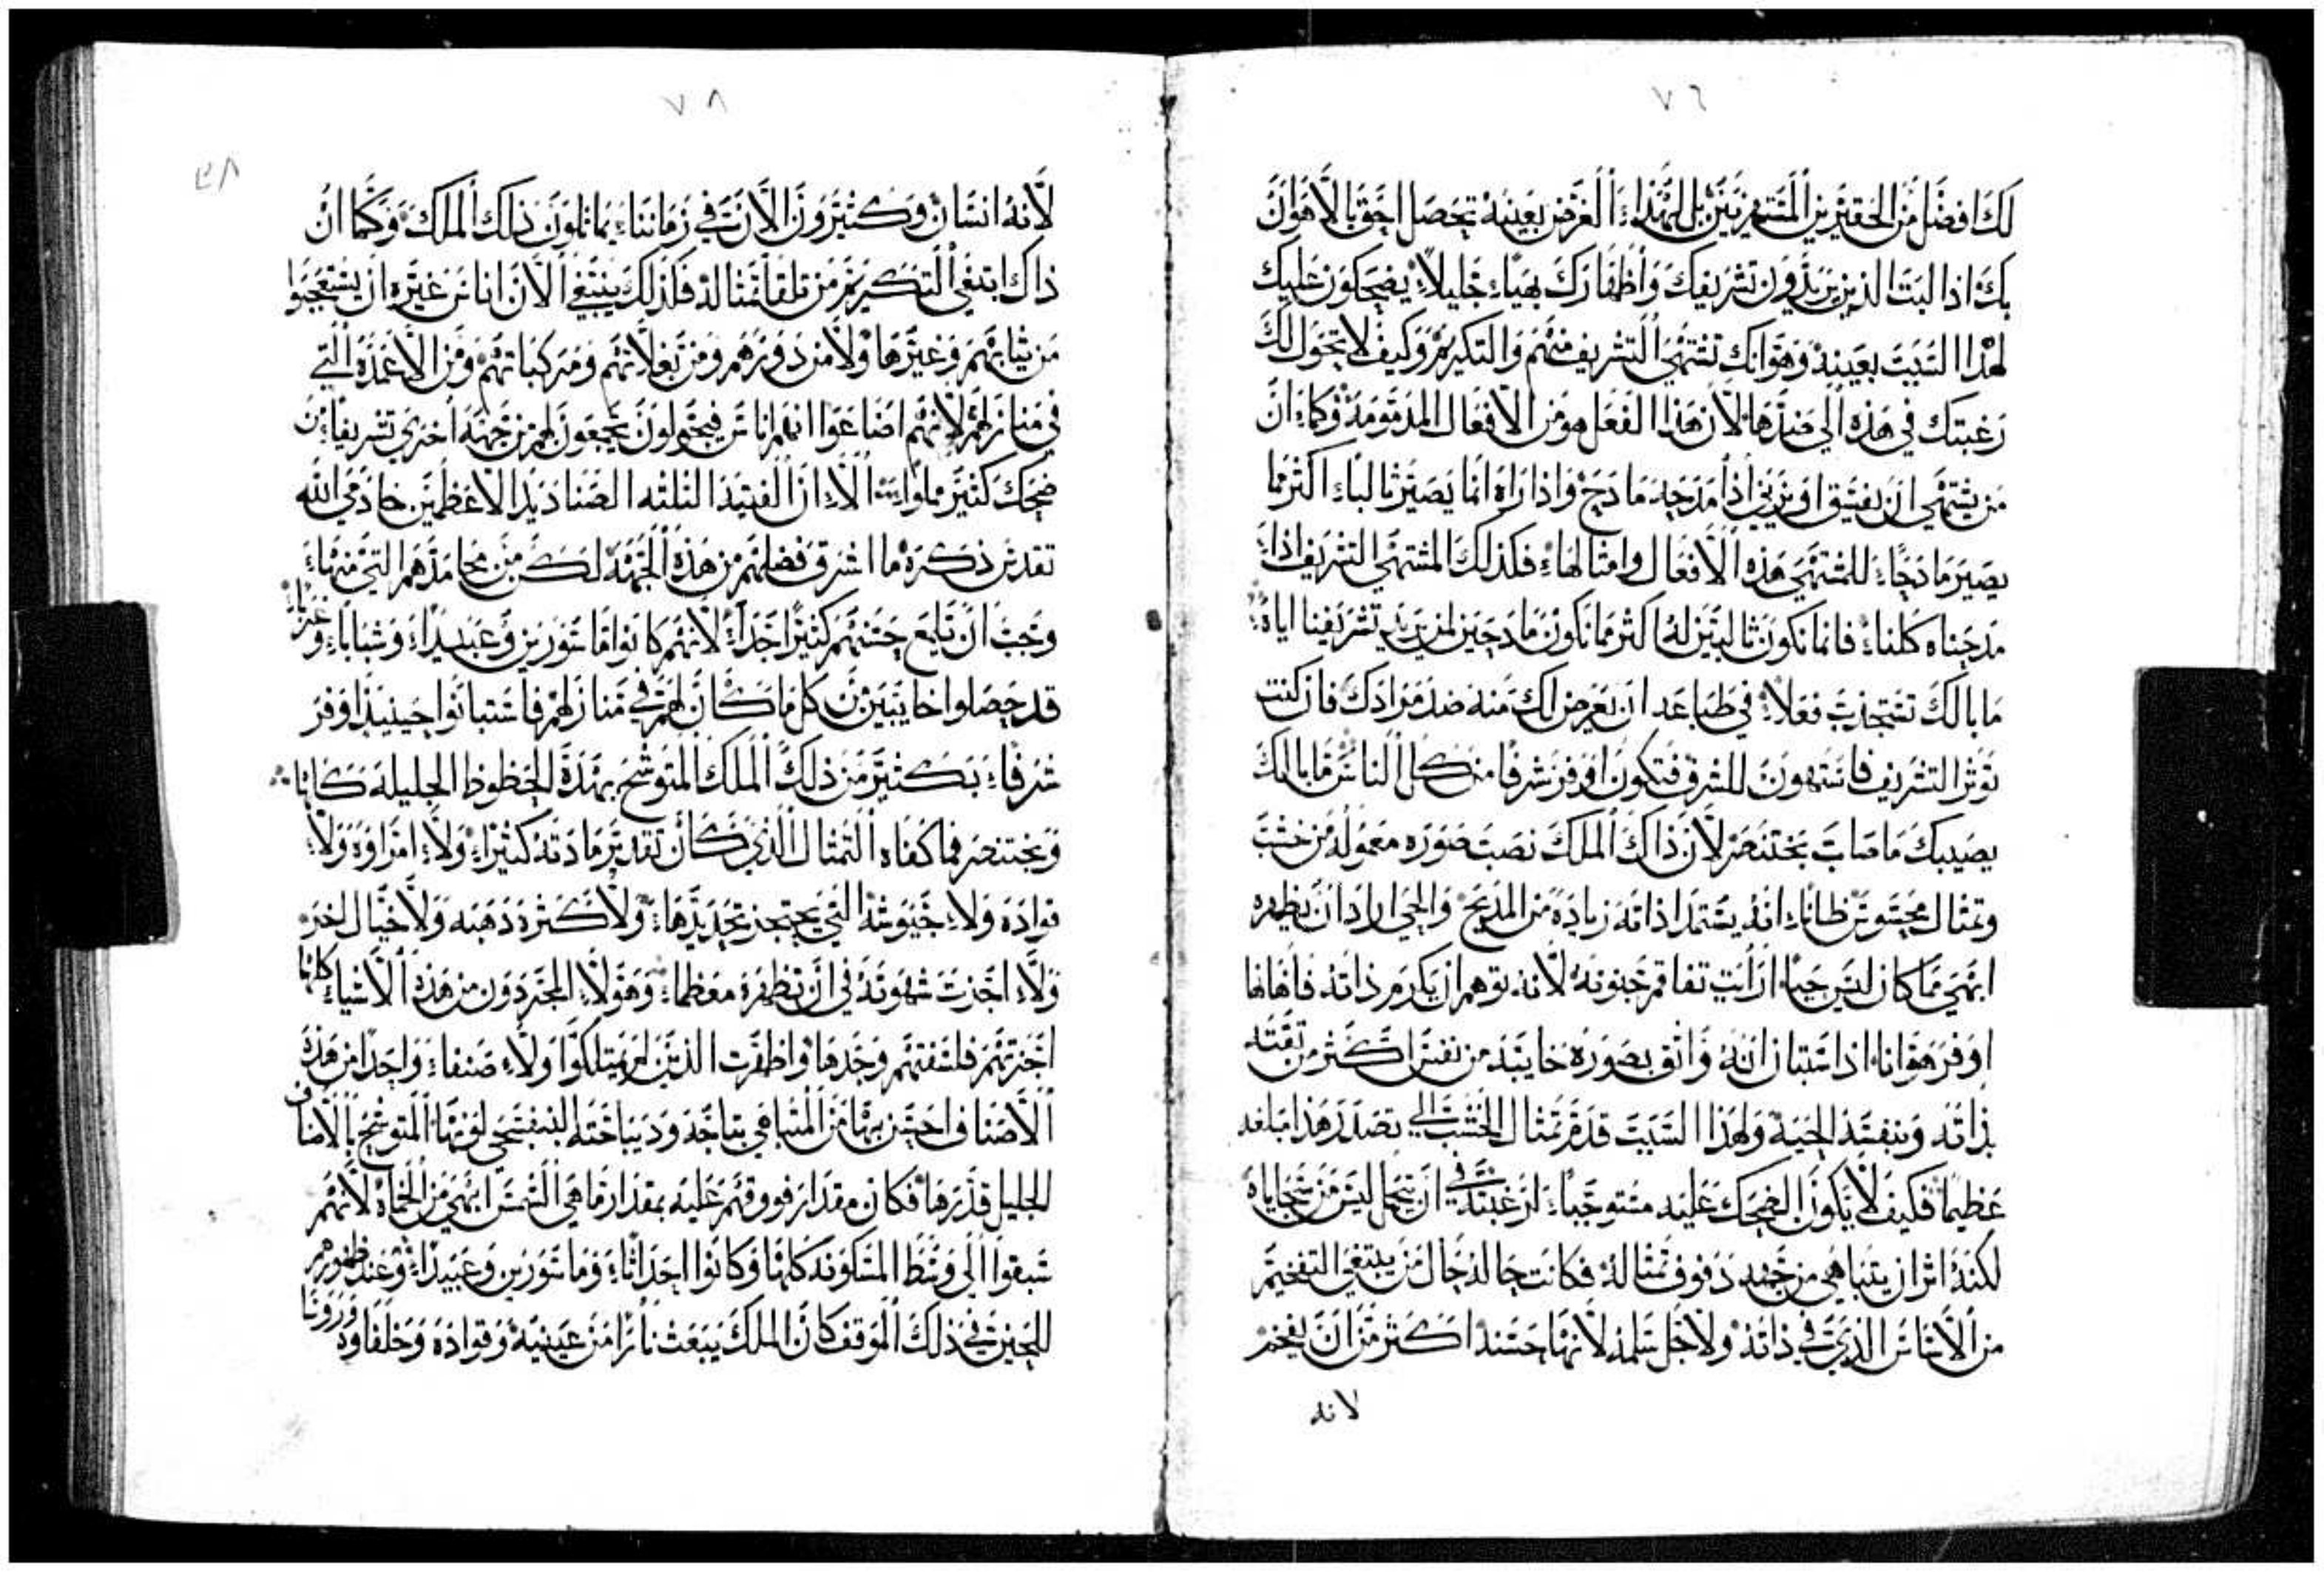 ٧٦
لك افضل من الحقيرين المتهزيين بل لهذا الغرض بعينه تحصل احق بالاهوان
بك اذا البت الذين يريدون تشريفك واظفارك بهيا جليلا يضحكون عليك
لهذا السبب بعينه وهو انك تشتهي التشريف منهم والتكريم وكيف لا تحول لك
رغبتك في هذه الي ضدها لان هذا الفعل هو من الافعال المذمومة وكما ان
من يشتهي ان يفسق او يزني اذا مدحه مادح واذا راه انما يصير ثالبا اكثر مما
يصير مادحا للمشتهي هذه الافعال وامثالها فكذلك المشتهي التشريف اذا
مدحناه كلنا فانما نكون ثالبين له اكثر مما نكون مادحين لمن يريد تشريفنا اياه
ما بالك تستجذب فعلا في طباعه ان يعرض لك منه ضد مرادك فان كنت
توثر التشريف فاستهون للشرف فتكون اوفر شرفا من كل الناس ما بالك
يصيبك ما صاب بختنصر لان ذاك الملك نصب صوره معموله من خشب
وتمثال محسوس ظانا انه يستمد اذاته زياده من المديح والحي اراد ان يظهره
ابهي مما كان ليس حيا ارايت تفاقم جنونه لانه توهم ان يكرم ذاته فاهانها
اوفر هوانا اذ استبان انه واثق بصوره خايبه من نفس اكثر من ثقته
بذاته وبنفسه الحيه ولهذا السبب قدم تمثال الخشب الي تصدر هذا مبلغه
عظيما فكيف لا يكون الضحك عليه مستوجبا ان رغبته في ان يتجمل ليس من سجاياه
لكنه اثر ان يتباهي من جهه دفوف تمثاله فكانت حاله حال من يبتغي التفخيم
من الاناس الذي في ذاته ولاجل سلمه لانها حسنه اكثر من ان يفخم
لانه
٧٨
لانه انسان وكثيرون الان في زماننا يماثلون ذلك الملك وكما ان
ذاك ابتغي التكريم من تلقا تمثاله فكذلك يبتغي الان اناس غيره ان يستعجبوا
من ثيابهم وغيرها ولا من دورهم ومن بغلاتهم ومركباتهم ومن الاعمده التي
في منازلهم لانهم اضاعوا انهم اناس فيتجولون يجمعون لهم من جهه اخري تشريفا من
ضحك كثير مملوا الا ان الفتيه الثلثه الصناديد الاعظمين خادمي الله
تقدس ذكره ما اشرق فضلهم من هذه الجهه لكن من محامدهم التي منها
وجب ان تلمع حسنهم كثيرا جدا لانهم كانوا ماسورين وعبيدا وشبابا وغربا
قد حصلوا خايبين من كل ما كان لهم في منازلهم فاستبانوا حينيذ اوفر
شرفا بكثير من ذلك الملك المتوشح بهذه الحظوظ الجليله كلها
وبختنصر فما كفاه التمثال الذي كان تقدير مادته كثيرا ولا امراوه ولا
قواده ولا جيوشه التي يحتجز تحديدها ولا كثره دهبه ولا خيال اخر
ولا اجزت شهوته في ان تظهره معظما وهولا المجردون من هذه الاشيا كلها
اجزتهم فلسفتهم وحدها واظهرت الذين لم يمتلكوا ولا صنفا واحدا من هذه
الاصناف احسن بها من المتباهي بتاجه وديباجته البنفسجي لونها المتوشح بالاصناف
الجليل قدرها فكان مقدار فووقهم عليه بمقدار ما هي الشمس ابهي من الحماه لانهم
سبقوا الي وسط المسكونه كلها وكانوا احداثا وماسورين وعبيدا وعند ظهورهم
للحين في ذلك الموقف كان الملك يبعث نارا من عينيه وقواده وخلفاوه